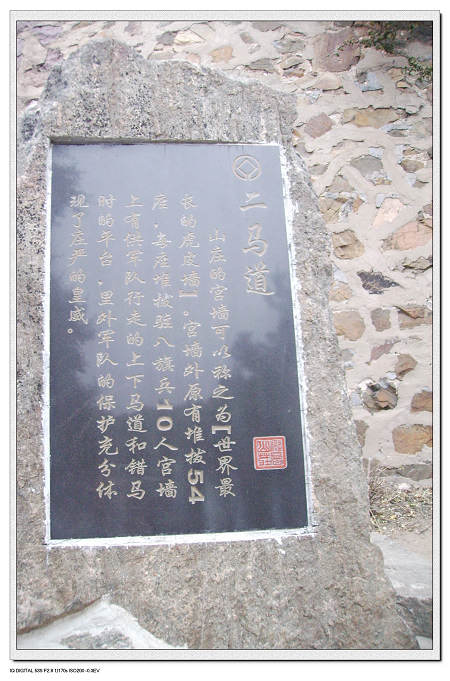 二马道
山庄的宫墙可以称之为【世界最
长的虎皮墙】。宫墙外原有堆拔54
座，每座堆拔驻八旗兵10人宫墙
上有供军队行走的上下马道和错马
时的平台，里外军队的保护充分体
现了庄严的皇威。
IQ DIGITAL 585 F2.8 1/170s ISO200 -0.3EV